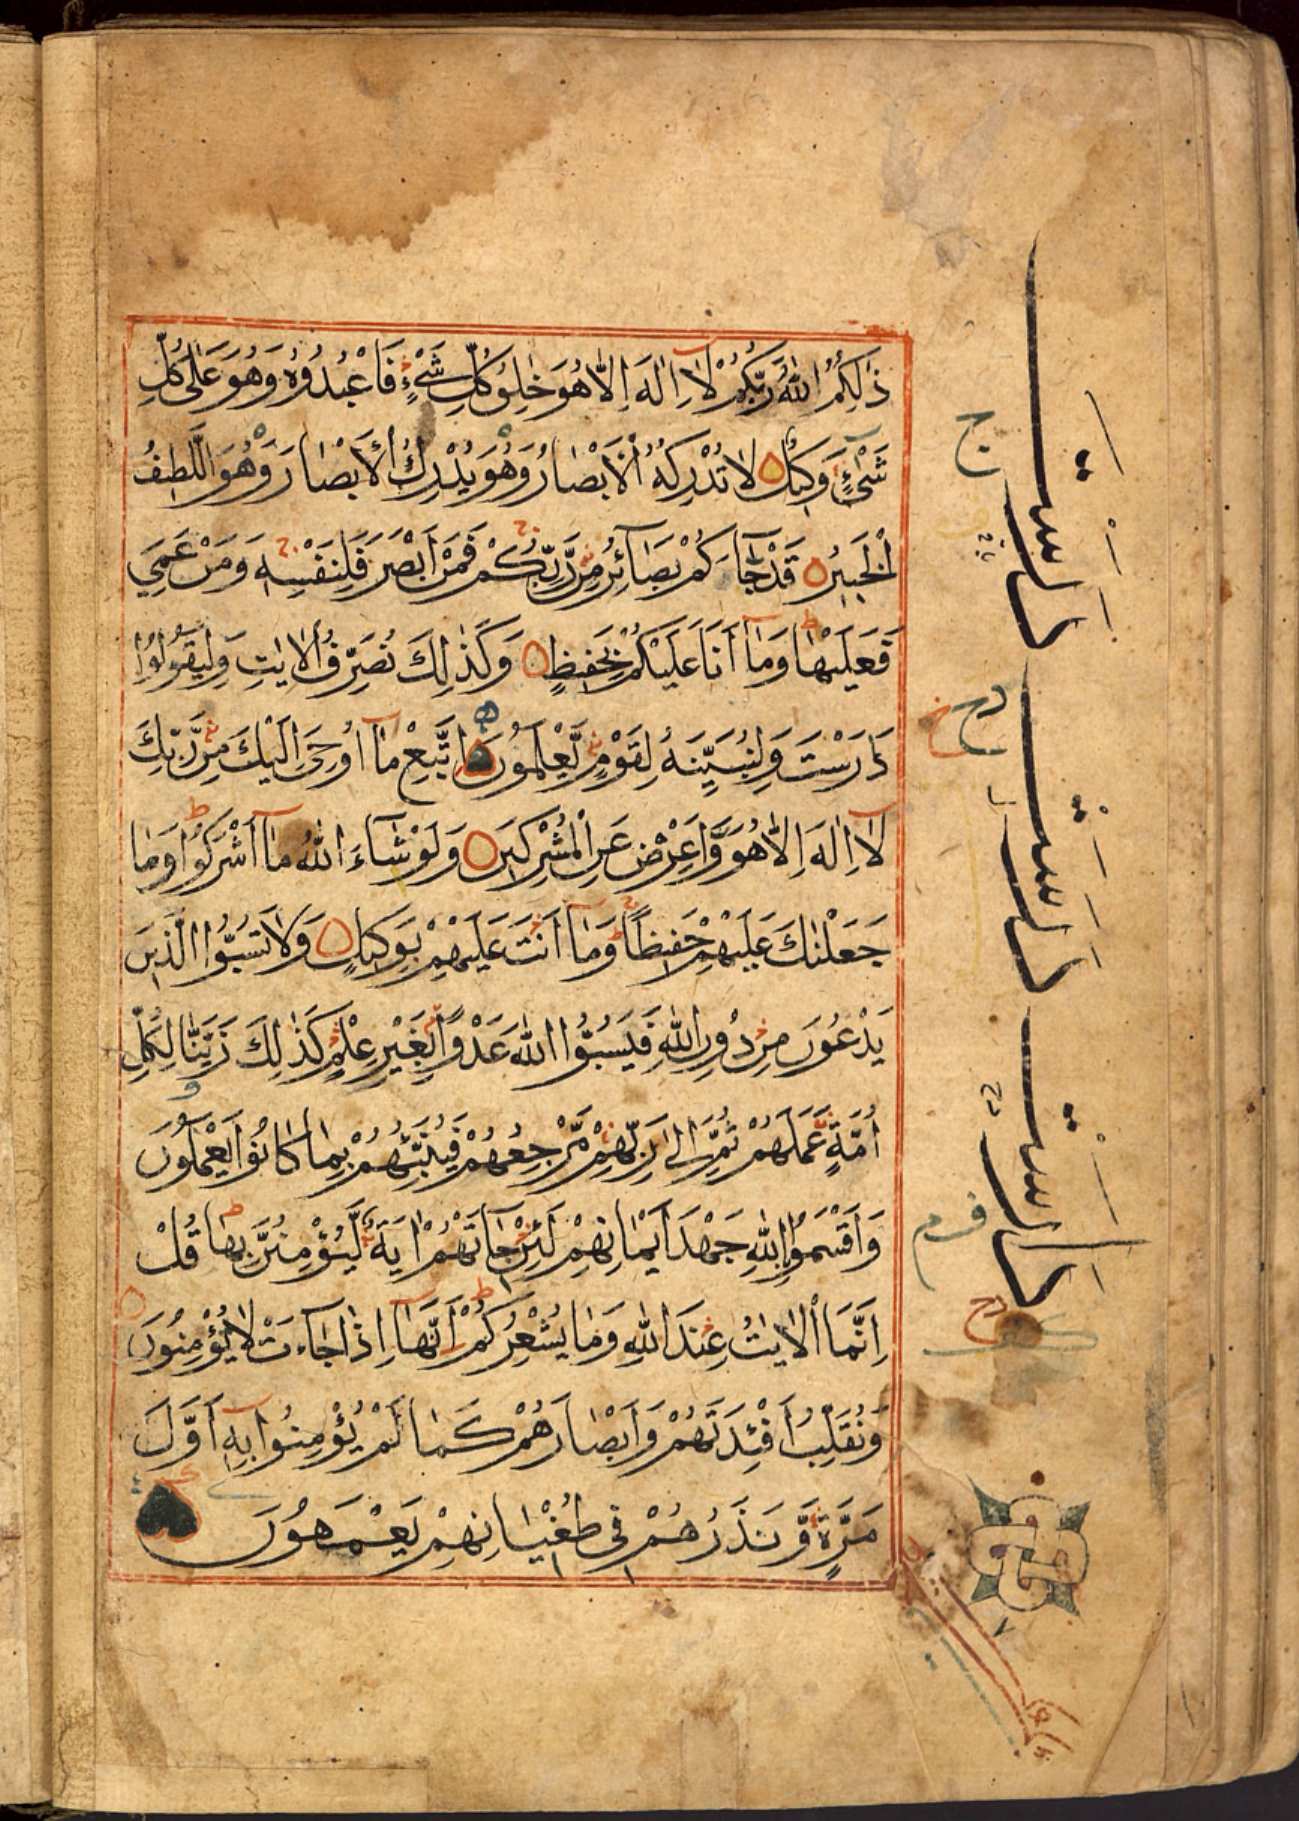 ذٰلِكُمُ اللّٰهُ رَبُّكُمْ لَآ اِلٰهَ اِلَّا هُوَ خٰلِقُ كُلِّ شَيْءٍ فَاعْبُدُوْهُ وَهُوَ عَلٰى كُلِّ
شَيْءٍ وَكِيْلٌ لَا تُدْرِكُهُ الْاَبْصَارُ وَهُوَ يُدْرِكُ الْاَبْصَارَ وَهُوَ اللَّطِيْفُ
الْخَبِيْرُ قَدْ جَآءَكُمْ بَصَآئِرُ مِنْ رَّبِّكُمْ فَمَنْ اَبْصَرَ فَلِنَفْسِهٖ وَمَنْ عَمِيَ
فَعَلَيْهَا وَمَآ اَنَا عَلَيْكُمْ بِحَفِيْظٍ وَكَذٰلِكَ نُصَرِّفُ الْاٰيٰتِ وَلِيَقُوْلُوْا
دَارَسْتَ وَلِنُبَيِّنَهٗ لِقَوْمٍ يَّعْلَمُوْنَ اِتَّبِعْ مَآ اُوْحِيَ اِلَيْكَ مِنْ رَّبِّكَ
لَآ اِلٰهَ اِلَّا هُوَ وَاَعْرِضْ عَنِ الْمُشْرِكِيْنَ وَلَوْ شَآءَ اللّٰهُ مَآ اَشْرَكُوْا وَمَا
جَعَلْنٰكَ عَلَيْهِمْ حَفِيْظًا وَمَآ اَنْتَ عَلَيْهِمْ بِوَكِيْلٍ وَلَا تَسُبُّوا الَّذِيْنَ
يَدْعُوْنَ مِنْ دُوْنِ اللّٰهِ فَيَسُبُّوا اللّٰهَ عَدْوًا بِغَيْرِ عِلْمٍ كَذٰلِكَ زَيَّنَّا لِكُلِّ
اُمَّةٍ عَمَلَهُمْ ثُمَّ اِلٰى رَبِّهِمْ مَّرْجِعُهُمْ فَيُنَبِّئُهُمْ بِمَا كَانُوْا يَعْمَلُوْنَ
وَاَقْسَمُوْا بِاللّٰهِ جَهْدَ اَيْمَانِهِمْ لَئِنْ جَآءَتْهُمْ اٰيَةٌ لَّيُؤْمِنُنَّ بِهَا قُلْ
اِنَّمَا الْاٰيٰتُ عِنْدَ اللّٰهِ وَمَا يُشْعِرُكُمْ اَنَّهَآ اِذَا جَآءَتْ لَا يُؤْمِنُوْنَ
وَنُقَلِّبُ اَفْئِدَتَهُمْ وَاَبْصَارَهُمْ كَمَا لَمْ يُؤْمِنُوْا بِهٖٓ اَوَّلَ
مَرَّةٍ وَّنَذَرُهُمْ فِيْ طُغْيَانِهِمْ يَعْمَهُوْنَ